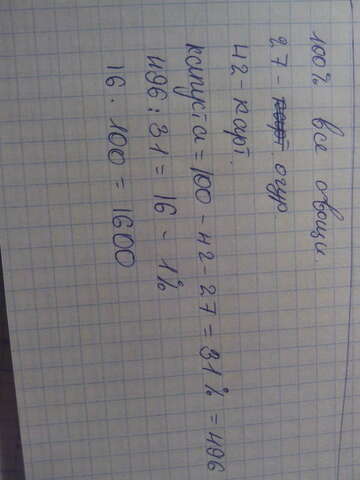 100% все овощи
27 - огур
42 - карт.
капуста = 100 - 42 - 27 = 31% = 496
496 : 31 = 16 - 1%
16 . 100 = 1600